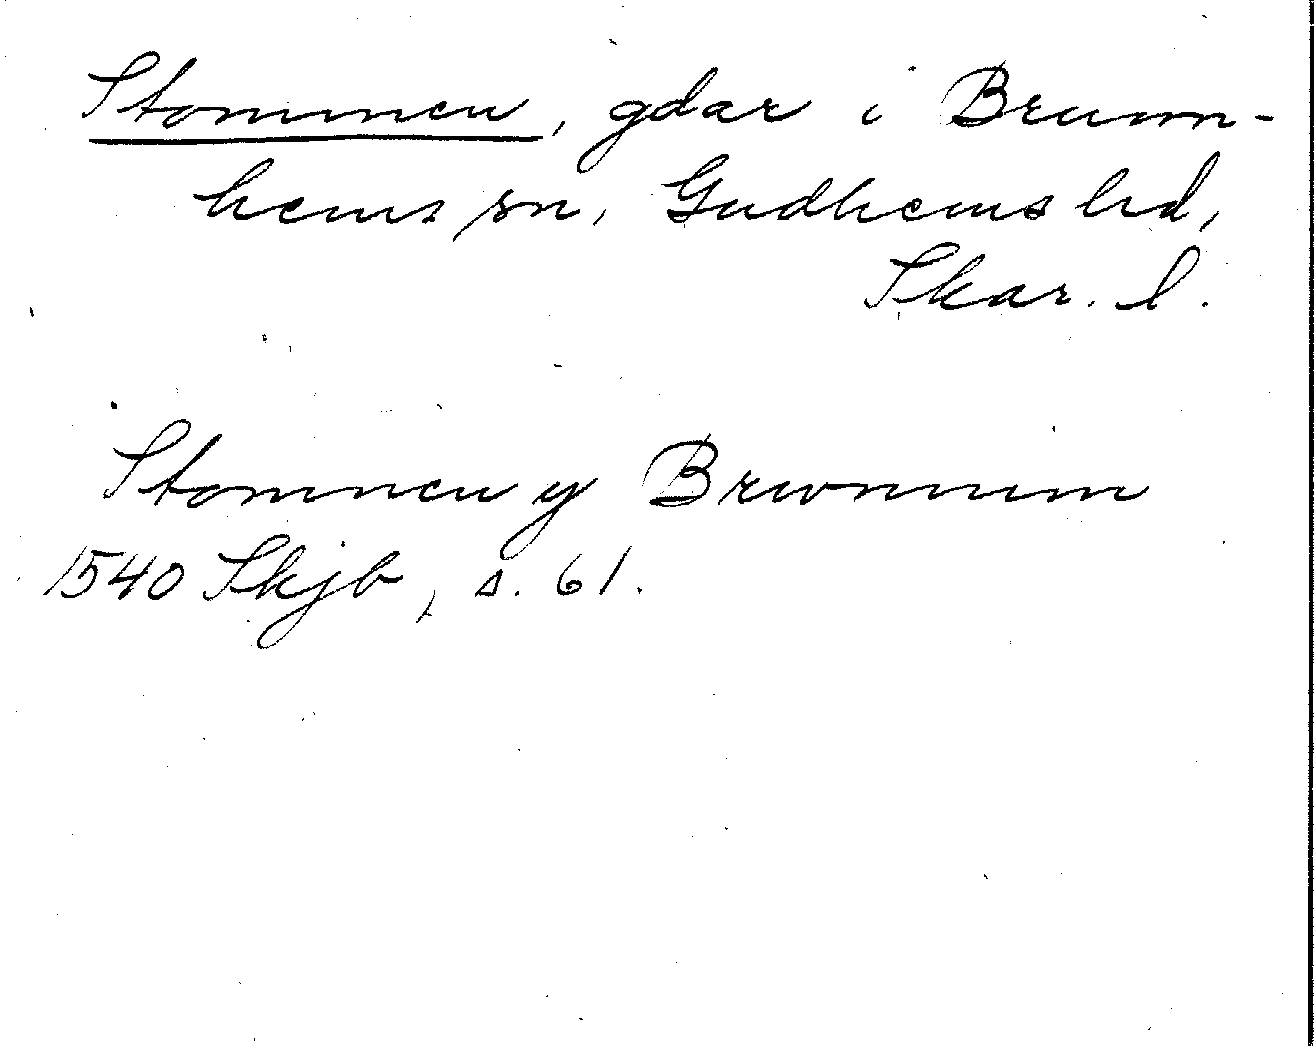 Stommen, gdar i Brunn-
hems sn, Gudhems hd,
Skar. l.
Stomnen y Brwnnum
1540 Skjb, s. 61.